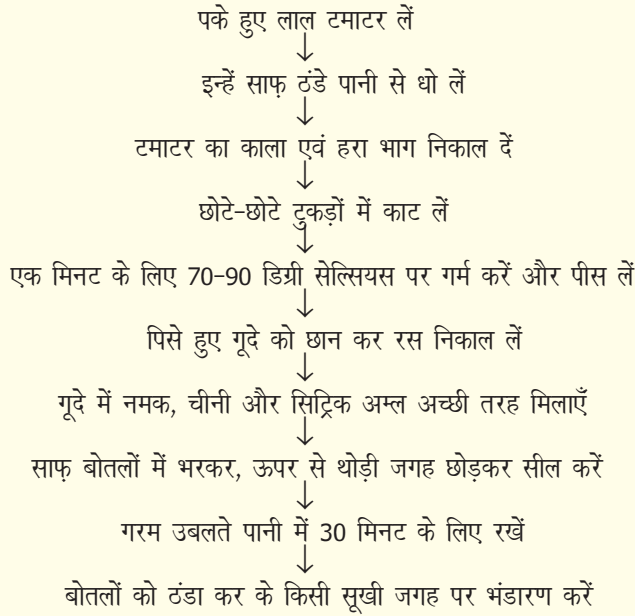 पके हुए लाल टमाटर लें
↓
इन्हें साफ़ ठंडे पानी से धो लें
↓
टमाटर का काला एवं हरा भाग निकाल दें
↓
छोटे-छोटे टुकड़ों में काट लें
↓
एक मिनट के लिए 70-90 डिग्री सेल्सियस पर गर्म करें और पीस लें
↓
पिसे हुए गूदे को छान कर रस निकाल लें
↓
गूदे में नमक, चीनी और सिट्रिक अम्ल अच्छी तरह मिलाएँ
↓
साफ़ बोतलों में भरकर, ऊपर से थोड़ी जगह छोड़कर सील करें
↓
गरम उबलते पानी में 30 मिनट के लिए रखें
↓
बोतलों को ठंडा कर के किसी सूखी जगह पर भंडारण करें